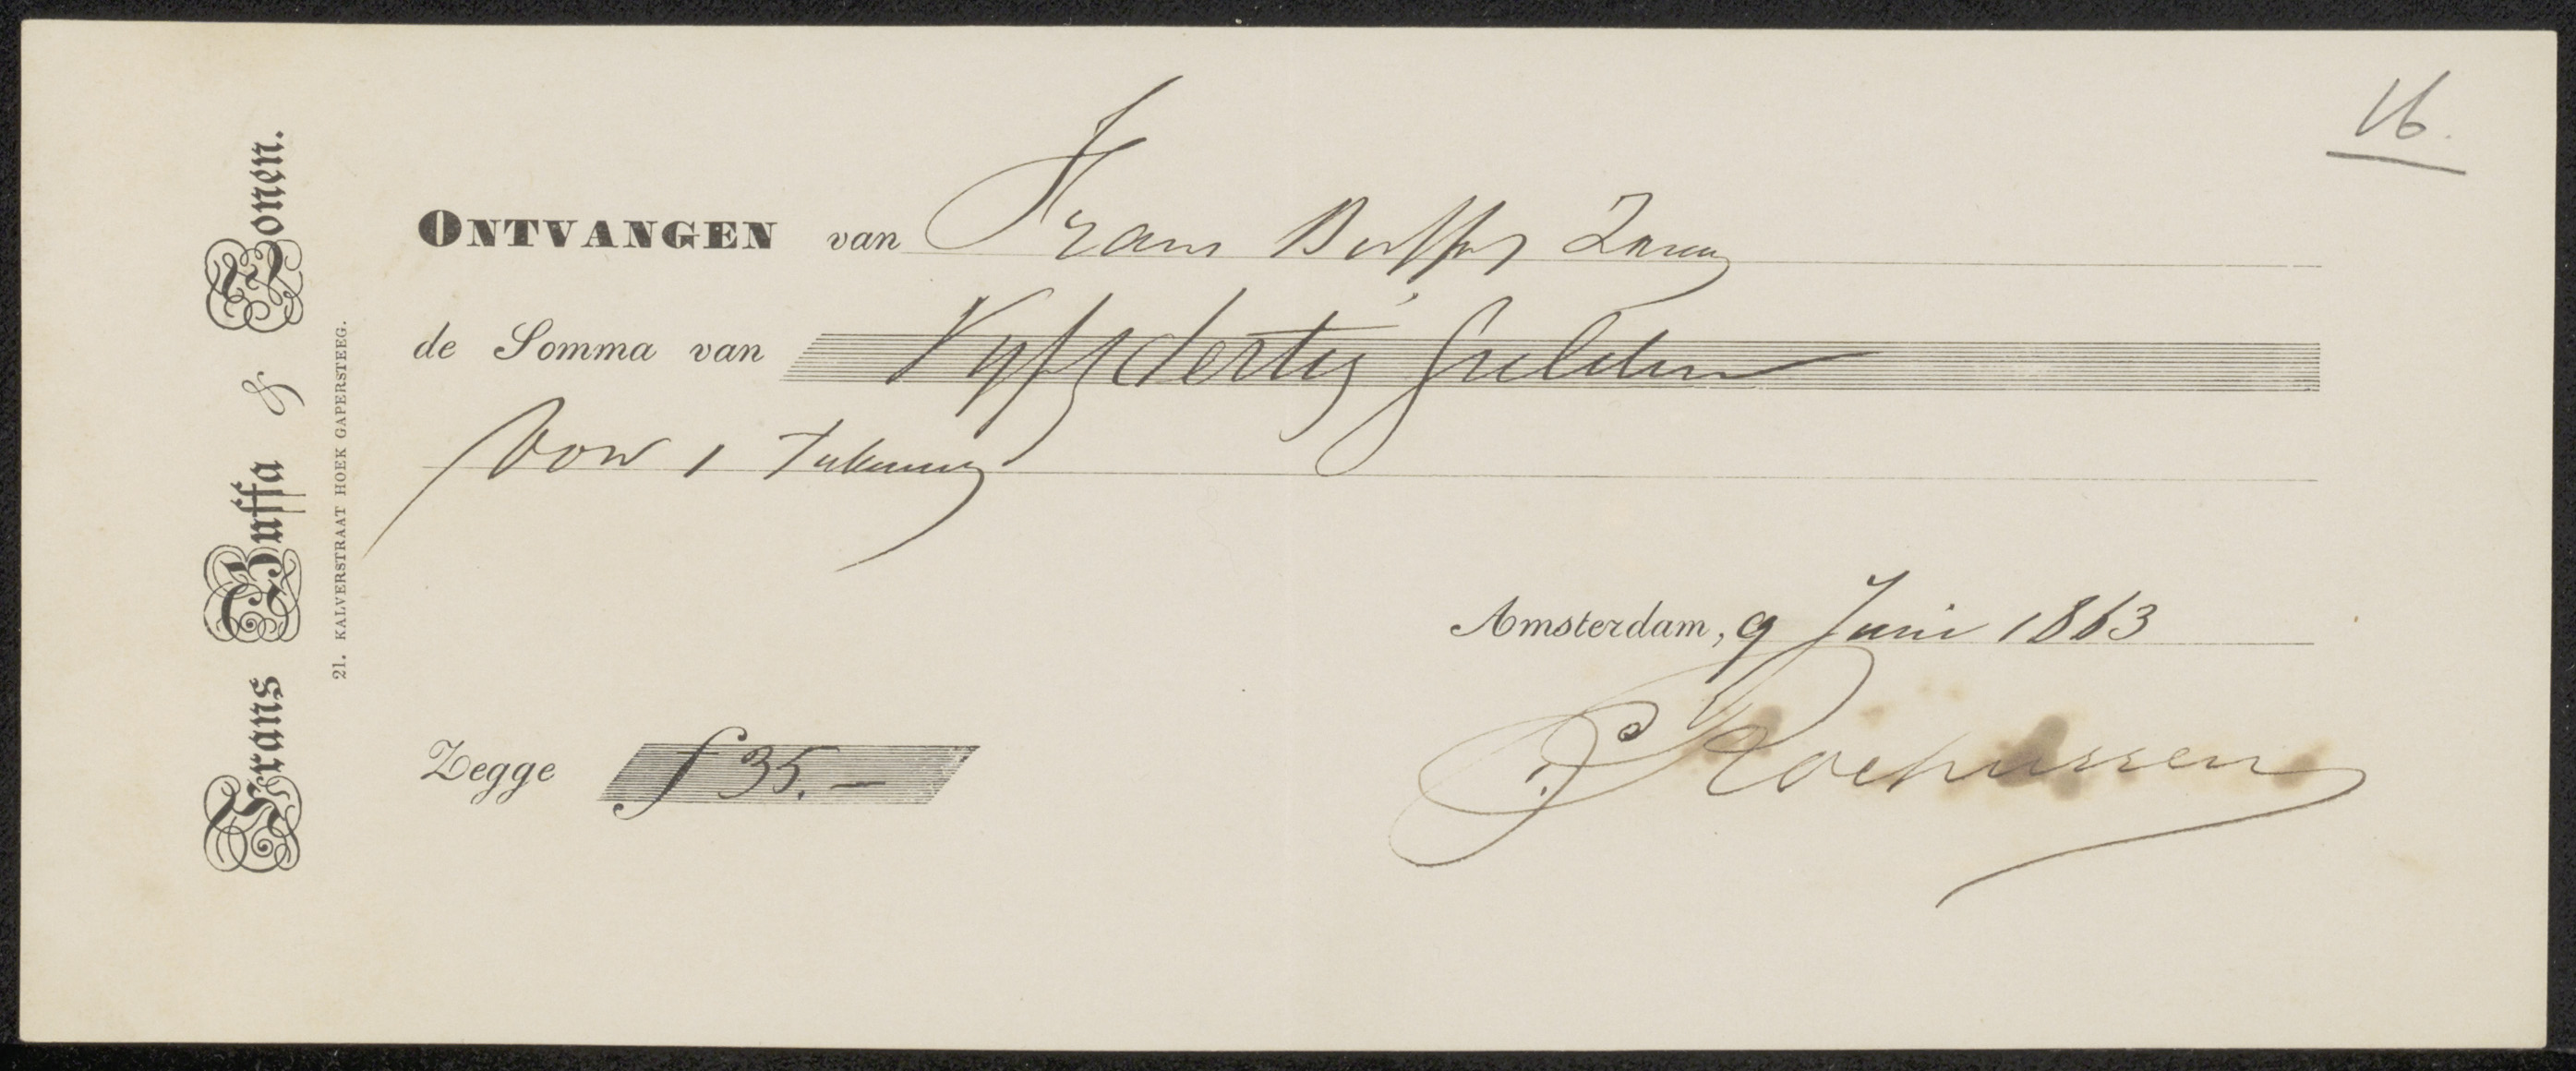 16.
Frans Buffa & Zoonen.
21. KALVERSTRAAT HOEK GAPERSTEEG.
ONTVANGEN van Frans Buffa Zonen
de Somma van Vyf & dertig Gulden
Voor 1 Tekening
Amsterdam, 9 Juni 1863
Zegge f 35.-
C. Rochussen